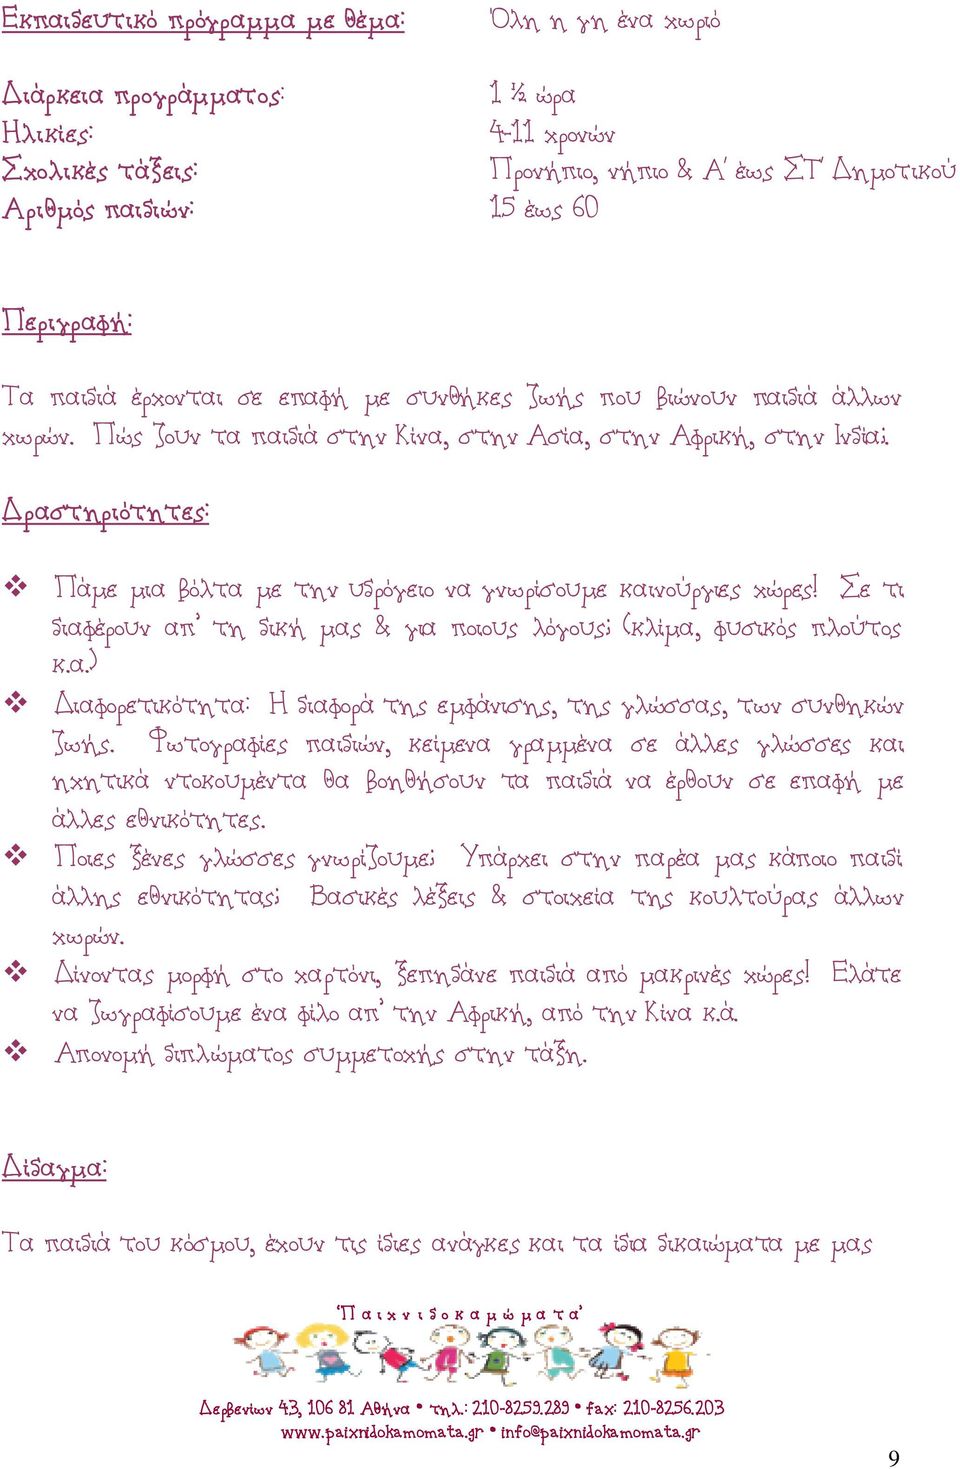 Εκπαιδευτικό πρόγραμμα με θέμα: Όλη η γη ένα χωριό
Διάρκεια προγράμματος: 1 ½ ώρα
Ηλικίες: 4-11 χρονών
Σχολικές τάξεις: Προνήπιο, νήπιο & Α΄ έως ΣΤ΄ Δημοτικού
Αριθμός παιδιών: 15 έως 60
Περιγραφή:
Τα παιδιά έρχονται σε επαφή με συνθήκες ζωής που βιώνουν παιδιά άλλων
χωρών. Πώς ζουν τα παιδιά στην Κίνα, στην Ασία, στην Αφρική, στην Ινδία;.
Δραστηριότητες:
❖ Πάμε μια βόλτα με την υδρόγειο να γνωρίσουμε καινούργιες χώρες! Σε τι
διαφέρουν απ’ τη δική μας & για ποιους λόγους; (κλίμα, φυσικός πλούτος
κ.α.)
❖ Διαφορετικότητα: Η διαφορά της εμφάνισης, της γλώσσας, των συνθηκών
ζωής. Φωτογραφίες παιδιών, κείμενα γραμμένα σε άλλες γλώσσες και
ηχητικά ντοκουμέντα θα βοηθήσουν τα παιδιά να έρθουν σε επαφή με
άλλες εθνικότητες.
❖ Ποιες ξένες γλώσσες γνωρίζουμε; Υπάρχει στην παρέα μας κάποιο παιδί
άλλης εθνικότητας; Βασικές λέξεις & στοιχεία της κουλτούρας άλλων
χωρών.
❖ Δίνοντας μορφή στο χαρτόνι, ξεπηδάνε παιδιά από μακρινές χώρες! Ελάτε
να ζωγραφίσουμε ένα φίλο απ’ την Αφρική, από την Κίνα κ.ά.
❖ Απονομή διπλώματος συμμετοχής στην τάξη.
Δίδαγμα:
Τα παιδιά του κόσμου, έχουν τις ίδιες ανάγκες και τα ίδια δικαιώματα με μας
‘Π α ι χ ν ι δ ο κ α μ ώ μ α τ α’
Δερβενίων 43, 106 81 Αθήνα • τηλ.: 210-8259.289 • fax: 210-8256.203
www.paixnidokamomata.gr • info@paixnidokamomata.gr
9